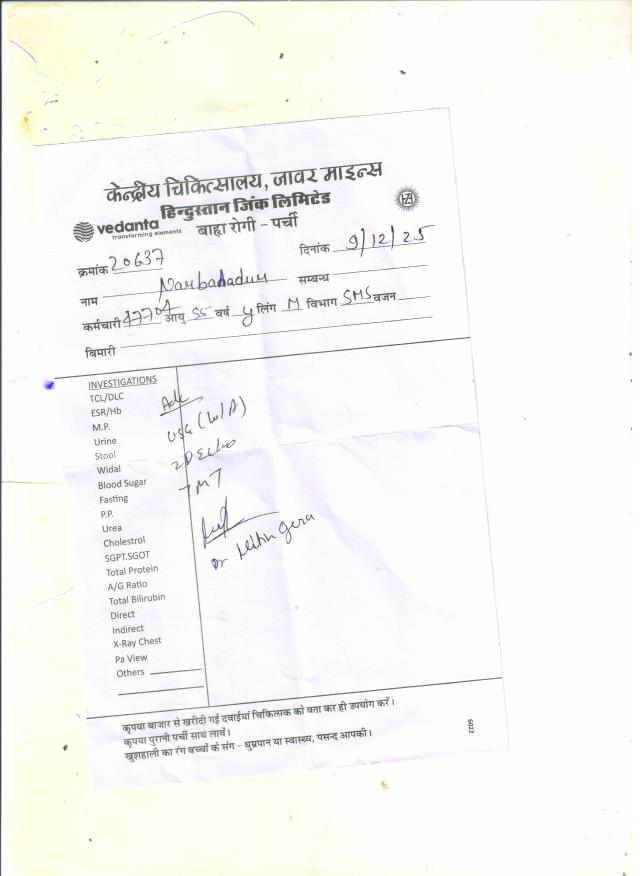 केन्द्रीय चिकित्सालय, जावर माइन्स
हिन्दुस्तान जिंक लिमिटेड
vedanta
transforming elements
बाह्य रोगी - पर्ची
क्रमांक 20637
दिनांक 9/12/25
नाम Narbahadur सम्बन्ध
कर्मचारी 47704 आयु 55 वर्ष y लिंग M विभाग SMS वजन
बिमारी
INVESTIGATIONS
TCL/DLC
ESR/Hb
M.P.
Urine
Stool
Widal
Blood Sugar
Fasting
P.P.
Urea
Cholestrol
SGPT.SGOT
Total Protein
A/G Ratio
Total Bilirubin
Direct
Indirect
X-Ray Chest
Pa View
Others
Adv
USG (W/A)
2D Echo
TMT
Dr Nitin Gera
कृपया बाजार से खरीदी गई दवाईयां चिकित्सक को बता कर ही उपयोग करें।
कृपया पुरानी पर्ची साथ लावें।
खुशहाली का रंग बच्चों के संग - धुम्रपान या स्वास्थ्य, पसन्द आपकी।
6022